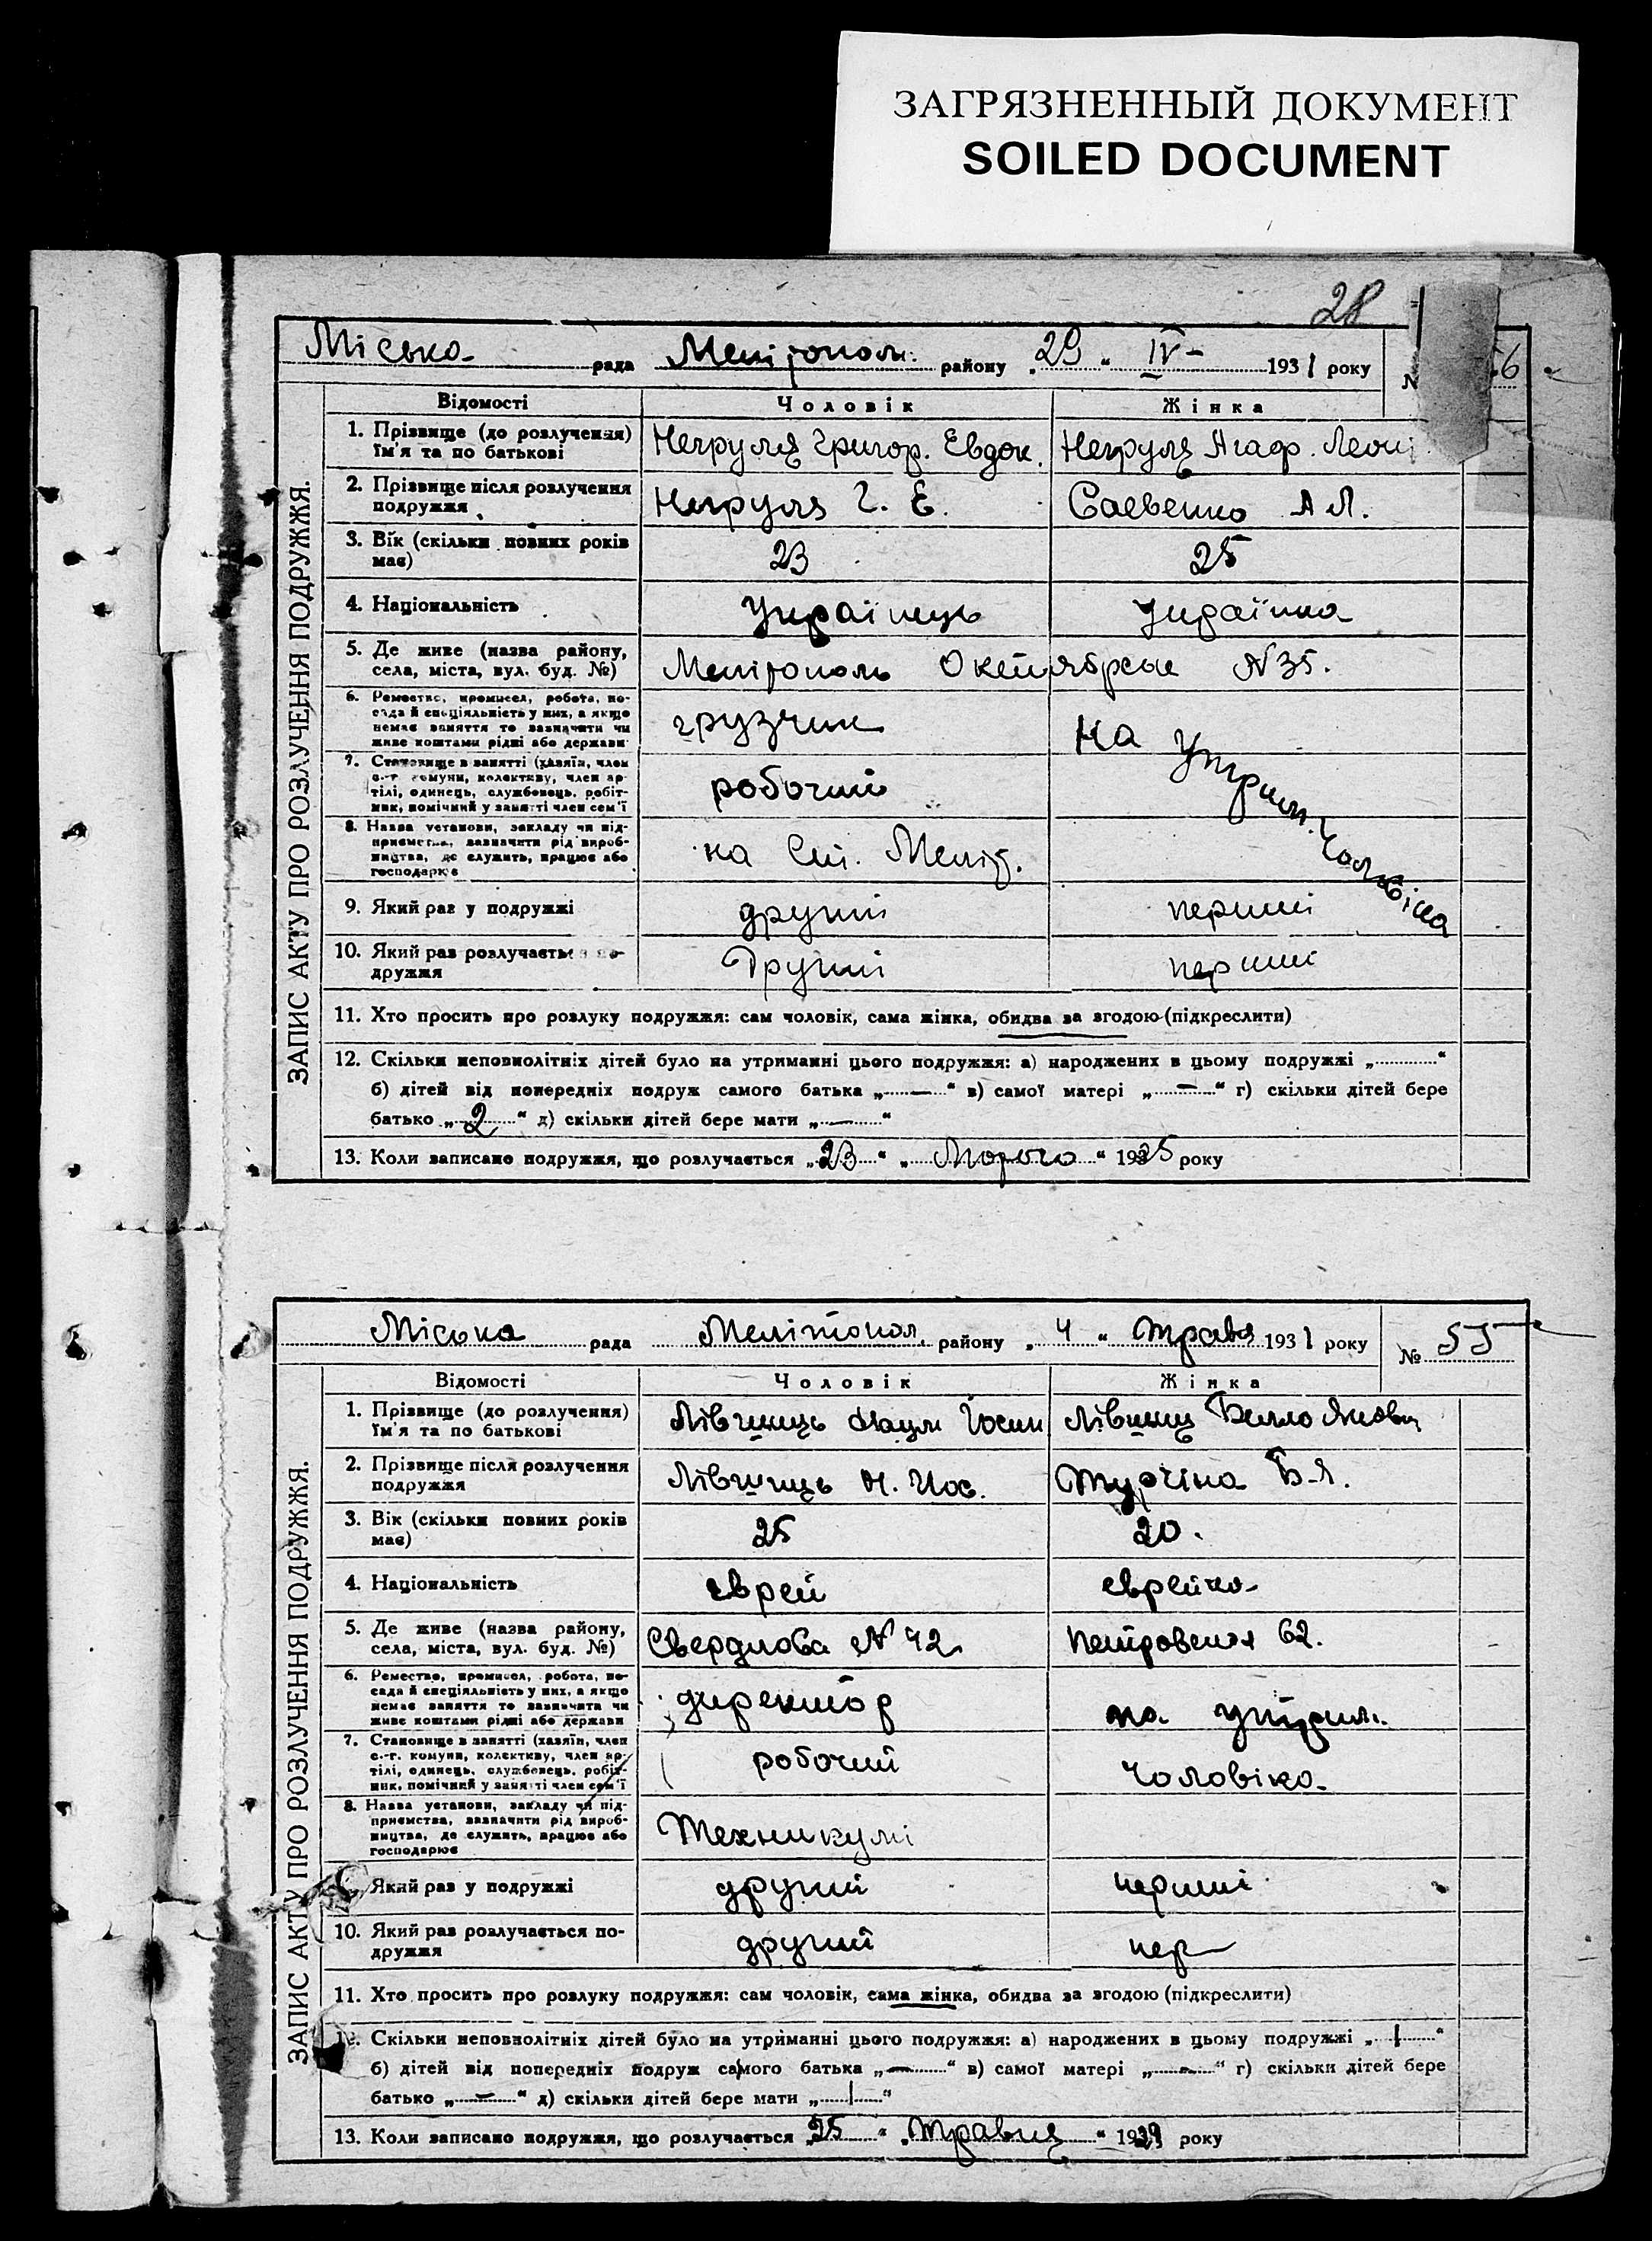 ЗАГРЯЗНЕННЫЙ ДОКУМЕНТ
SOILED DOCUMENT
28
ЗАПИС АКТУ ПРО РОЗЛУЧЕННЯ ПОДРУЖЖЯ.
Міська рада Мелітопол. району „29“ IV- 1931 року
Відомості Чоловік Жінка
1. Прізвище (до розлучення) Ім'я та по батькові Негруля Григор. Евдок. Негруля Агаф. Леон
2. Прізвище після розлучення подружжя Негруля Г. Е. Саевенко А Л.
3. Вік (скільки повних років має) 23 25
4. Національність Українець Українка
5. Де живе (назва району, села, міста, вул. буд. №) Мелітополь Октябрськ N 35.
6. Ремество, промисел, робота, посада й спеціяльність у них, а якщо немає заняття то зазначити чи живе коштами рідні або держави грузчик на утрим. Чоловіка
7. Становище в занятті (хазяїн, член с.-г. комуни, колективу, член артілі, одинець, службовець, робітник, помічний у занятті член сем'ї робочий
8. Назва установи, закладу чи підприємства, зазначити рід виробництва, де служить, працює або господарює на Ст. Меліт.
9. Який раз у подружжі другий перший
10. Який раз розлучається подружжя Другий перший
11. Хто просить про розлуку подружжя: сам чоловік, сама жінка, обидва за згодою (підкреслити)
12. Скільки неповнолітніх дітей було на утриманні цього подружжя: а) народжених в цьому подружжі „ “
б) дітей від попередніх подруж самого батька „—“ в) самої матері „—“ г) скільки дітей бере
батько „2“ д) скільки дітей бере мати „—“
13. Коли записано подружжя, що розлучається „23“ „Марта“ 1925 року
ЗАПИС АКТУ ПРО РОЗЛУЧЕННЯ ПОДРУЖЖЯ.
Міська рада Мелітопол. району „4“ травн 1931 року № 55
Відомості Чоловік Жінка
1. Прізвище (до розлучення) Ім'я та по батькові Лівшиць Наум Йосип Лівшиц Белла Яковл
2. Прізвище після розлучення подружжя Лівшиць Н. Иос. Турчіна Б-Я.
3. Вік (скільки повних років має) 25 20.
4. Національність єврей єврейка
5. Де живе (назва району, села, міста, вул. буд. №) Свердлова N 42 Петровская 62.
6. Ремество, промисел, робота, посада й спеціяльність у них, а якщо немає заняття то зазначити чи живе коштами рідні або держави директор на утрим.
7. Становище в занятті (хазяїн, член с.-г. комуни, колективу, член артілі, одинець, службовець, робітник, помічний у занятті член сем'ї робочий Чоловіка
8. Назва установи, закладу чи підприємства, зазначити рід виробництва, де служить, працює або господарює Техникумі
Який раз у подружжі другий перший
10. Який раз розлучається подружжя другий пер
11. Хто просить про розлуку подружжя: сам чоловік, сама жінка, обидва за згодою (підкреслити)
12. Скільки неповнолітніх дітей було на утриманні цього подружжя: а) народжених в цьому подружжі „1“
б) дітей від попередніх подруж самого батька „—“ в) самої матері „—“ г) скільки дітей бере
батько „—“ д) скільки дітей бере мати „1“
13. Коли записано подружжя, що розлучається „25“ „Травня“ 1929 року